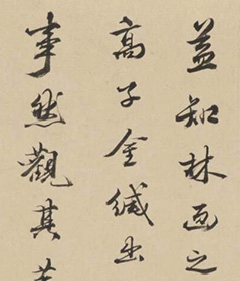 益知林画之
高子金緘出
事然觀其苦